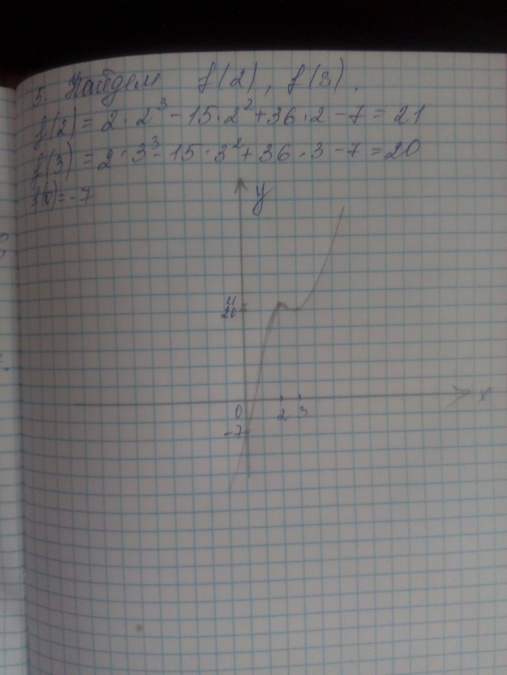 5. Найдем f(2), f(3).
f(2) = 2·2³ - 15·2² + 36·2 - 7 = 21
f(3) = 2·3³ - 15·3² + 36·3 - 7 = 20
f(0) = -7
y
21
20
0 2 3 x
-7